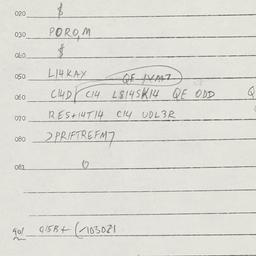 020 $
030 PORO,M
040 $
050 L14KAY QE
060 C14D C14 L814SK14 QE ODD Q
070 RES+14T14 C14 UDL3R
080 >PRIFTREFM7
081
901 Q15B+ (-103021